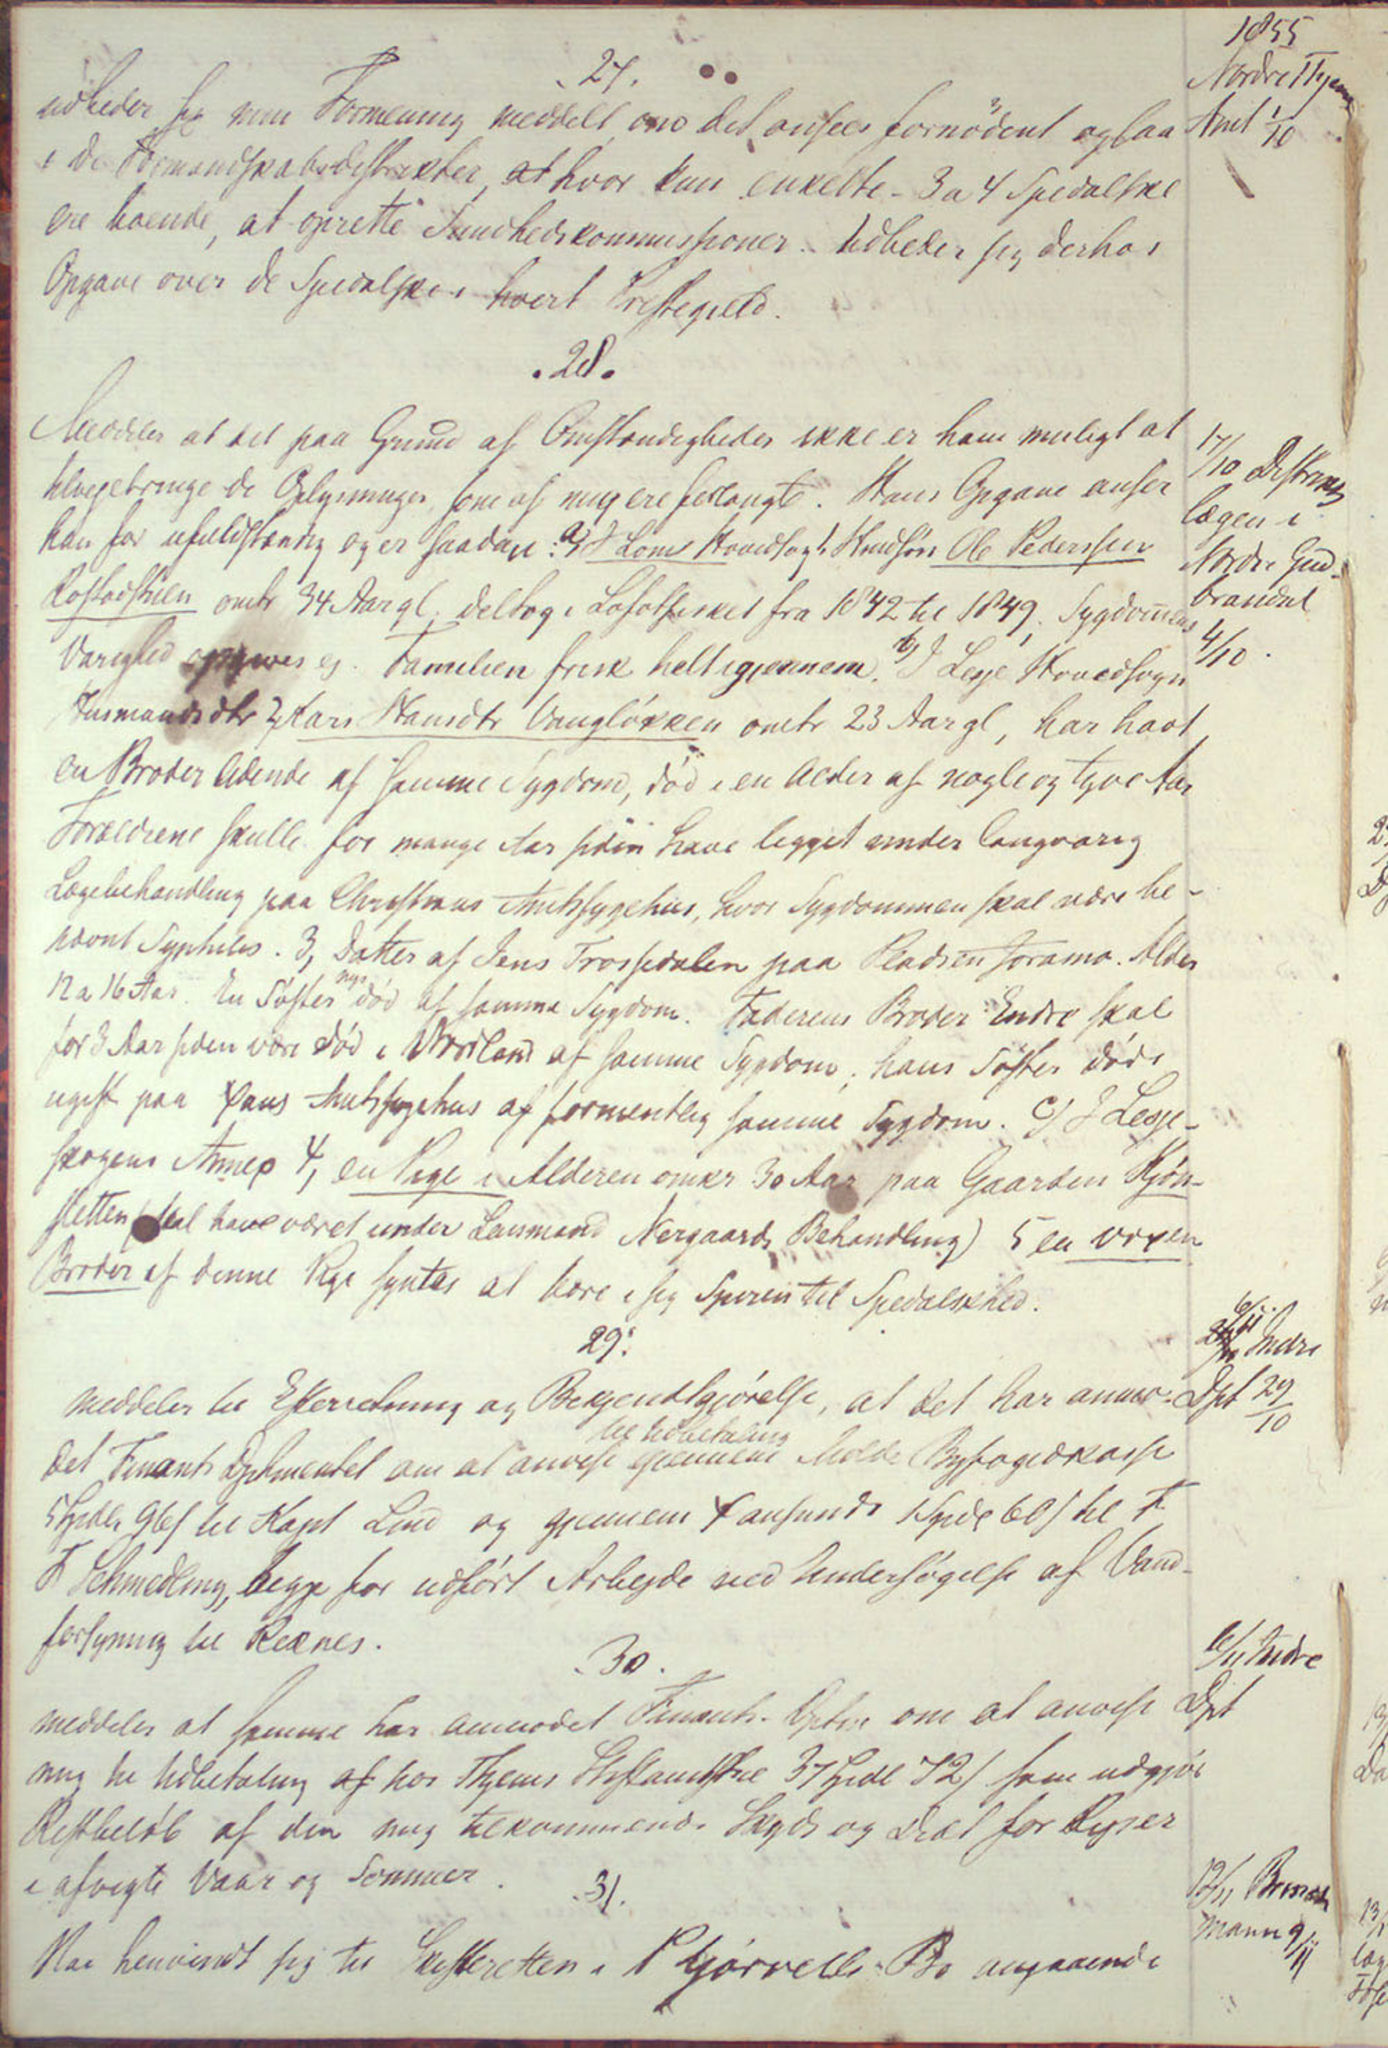 1855
.27.
Nordre Thjems
Amt 1/10
udbeder sig min Formening meddelt om det ansees fornødent ogsaa
i de Formandskabsdistrikter, at hvor kun enkelte - 3 a 4 Spedalske
ere boende, at oprette Sundhedskommissioner. Udbeder sig derhos
Opgave over de Spedalske i hvert Prestegjeld.
.28.
Meddeler at det paa Grund af Omstændigheder ikke er ham muligt at
tilvejebringe de Oplysninger som af mig ere forlangte. Hans Opgave anser
han for ufuldstændig og er saadan: a) I Loms Hovedsogn Ole Pederssen
omtr 34 Aar gl. deltog i Lofotfisket fra 1842 til 1849, Sygdommens
Varighed opgives ej. Familien frisk helt igjennem. b) I Lesje Hovedsogn
Husmandsdtr 2, Kari Hansdtr Vangløkken omtr 23 Aar gl, har havt
en Broder lidende af samme Sygdom, død i en Alder af nogle og tyve Aar
Forældrene skulle for mange Aar siden have ligget under langvarig
Lægebehandling paa Christians Amtssygehus, hvor Sygdommen skal være be-
nævnt Syphilis. 3, Datter af Jens Trosfdalen paa Pladsen Joramo. Alder
12 a 16 Aar. En Søster nys død af samme Sygdom. Faderens Broder Endre skal
for 3 Aar siden være død i af samme Sygdom, hans Søster døde
ugift paa Xans Amtssygehus af formentlig samme Sygdom. c) I Lesje-
skogens Annex 4, en Pige i Alderen omkr 30 Aar paa Gaarden
(skal have været under Lensmand Nergaards Behandling) 5 en voxen
Broder af denne Pige syntes at bære i sig Spiren til Spedalskhed.
17/10 Distrikts
lægen i
Nordre Gud-
brandsd
4/10.
29.
meddeler til Efterretning og Bekjendtgjørelse, at det har anmo-
det Finants Dptmentet om at anvise til Udbetaling gjennem Molde Byfogedkasse
5 Spdlr 96 s til Kapt Lund og gjennem Xansunds 1 Spdl 60 s til F
F Schmedling, begge for udført Arbejde ved Undersøgelse af Vand-
forsyning til Reknes.
6/11 Indre
Dpt 29/10
.30.
meddeler at samme har anmodet Finants-Dptm om at anvise
mig til Udbetaling af hos Thjems Stiftamtstue 37 Spdl 72 s som udgjør
Restbeløb af den mig tilkommende Skyds og Diæt for Rejser
i afvigte Vaar og Sommer.
6/11 Indre
Dpt
.31.
Har henvendt sig til Skifteretten i P Gjørvells Bo angaaende
12/11
mann 9/11